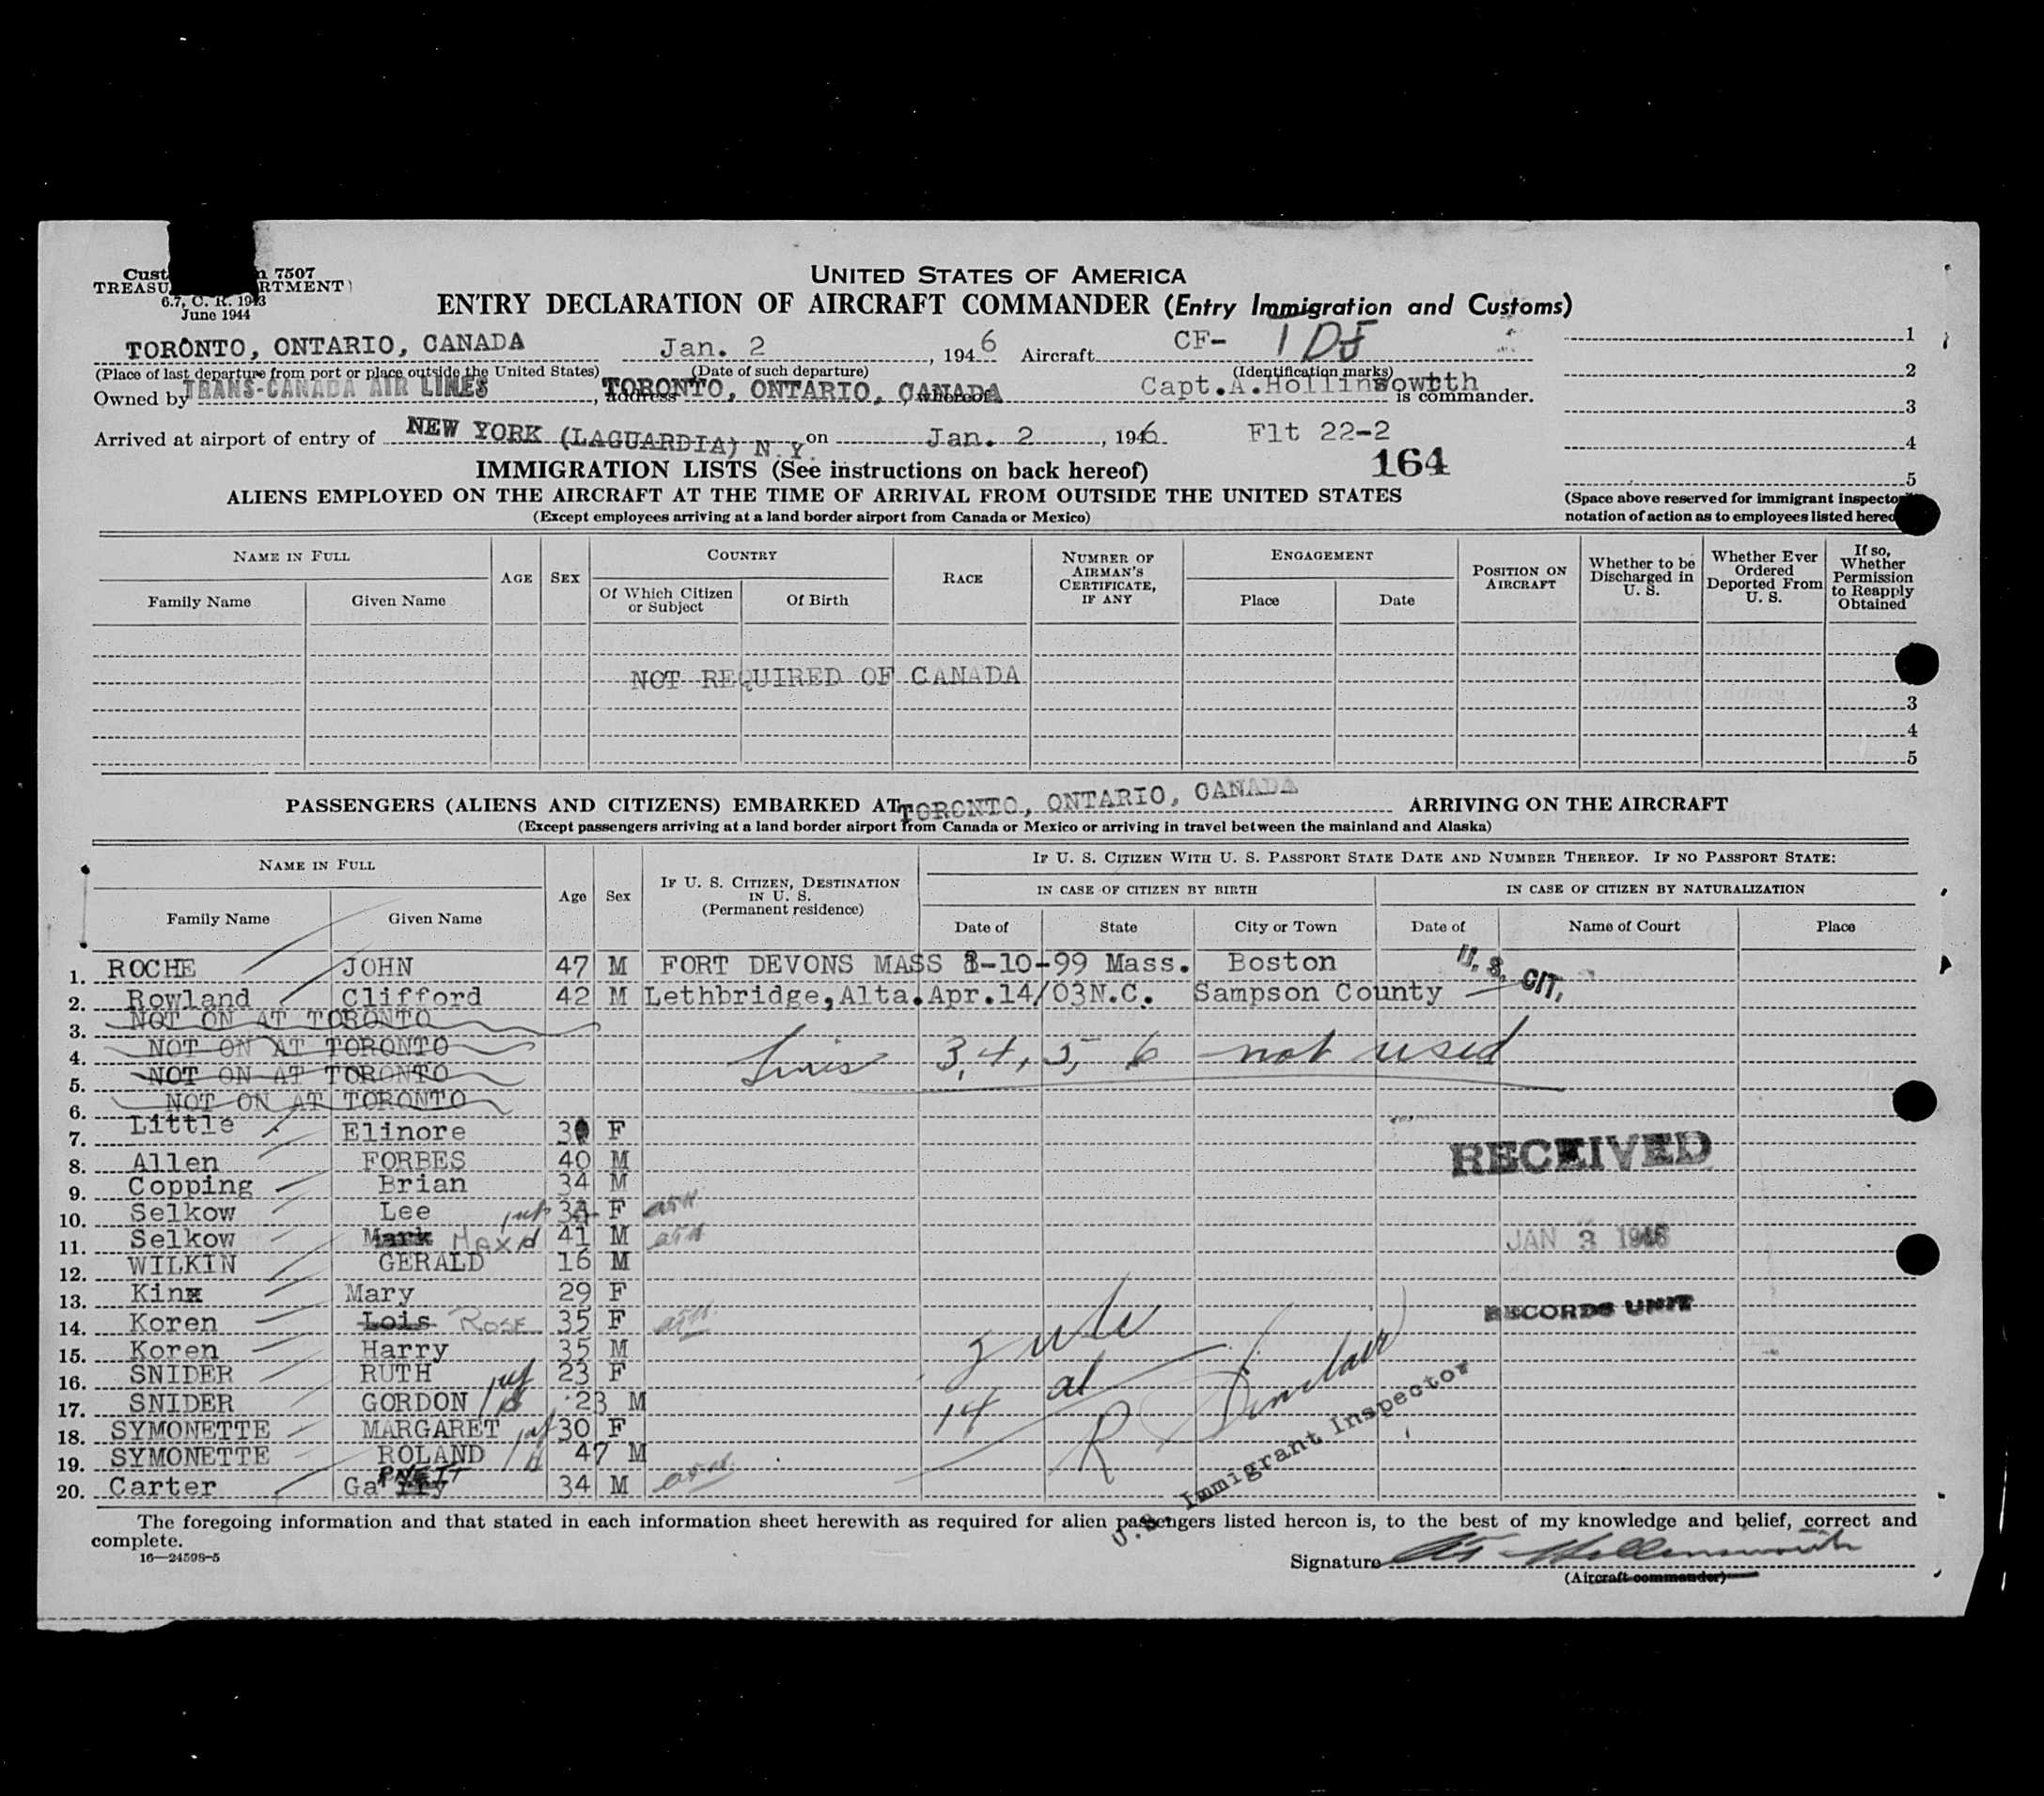 Cust n 7507
TREASU RTMENT
6.7, C. R. 1943
June 1944
UNITED STATES OF AMERICA
ENTRY DECLARATION OF AIRCRAFT COMMANDER (Entry Immigration and Customs)
TORONTO, ONTARIO, CANADA Jan. 2, 1946 Aircraft CF- TDJ 1
(Place of last departure from port or place outside the United States) (Date of such departure) (Identification marks) 2
Owned by TRANS-CANADA AIR LINES, address TORONTO, ONTARIO, CANADA, whereof Capt.A.Hollinsworth is commander.
3
Arrived at airport of entry of NEW YORK (LAGUARDIA) N.Y. on Jan. 2, 1946 Flt 22-2 4
IMMIGRATION LISTS (See instructions on back hereof) 164
5
ALIENS EMPLOYED ON THE AIRCRAFT AT THE TIME OF ARRIVAL FROM OUTSIDE THE UNITED STATES
(Space above reserved for immigrant inspector
(Except employees arriving at a land border airport from Canada or Mexico)
notation of action as to employees listed hereo
NAME IN FULL
Family Name Given Name
AGE SEX
COUNTRY
Of Which Citizen or Subject
Of Birth
RACE
NUMBER OF AIRMAN'S CERTIFICATE, IF ANY
ENGAGEMENT
Place Date
POSITION ON AIRCRAFT
Whether to be Discharged in U. S.
Whether Ever Ordered Deported From U. S.
If so, Whether Permission to Reapply Obtained
NOT REQUIRED OF CANADA
3
4
5
PASSENGERS (ALIENS AND CITIZENS) EMBARKED AT TORONTO, ONTARIO, CANADA ARRIVING ON THE AIRCRAFT
(Except passengers arriving at a land border airport from Canada or Mexico or arriving in travel between the mainland and Alaska)
NAME IN FULL
Family Name Given Name
Age Sex
IF U. S. CITIZEN, DESTINATION IN U. S. (Permanent residence)
IF U. S. CITIZEN WITH U. S. PASSPORT STATE DATE AND NUMBER THEREOF. IF NO PASSPORT STATE:
IN CASE OF CITIZEN BY BIRTH IN CASE OF CITIZEN BY NATURALIZATION
Date of State City or Town Date of Name of Court Place
1. ROCHE JOHN 47 M FORT DEVONS MASS 8-10-99 Mass. Boston
U. S. CIT.
2. Rowland Clifford 42 M Lethbridge,Alta. Apr.14/03 N.C. Sampson County
3. NOT ON AT TORONTO
4. NOT ON AT TORONTO Lines 3, 4, 5, 6 not used
5. NOT ON AT TORONTO
6. NOT ON AT TORONTO
7. Little Elinore F
8. Allen FORBES 40 M
RECEIVED
9. Copping Brian 34 M
10. Selkow Lee F
11. Selkow Mark Max 41 M
JAN 3 1946
12. WILKIN GERALD 16 M
13. Kinx Mary 29 F
14. Koren Lois ROSE 35 F
RECORDS UNIT
15. Koren Harry 35 M
16. SNIDER RUTH 23 F
17. SNIDER GORDON 23 M
14 al
R Sinclair
18. SYMONETTE MARGARET 30 F
19. SYMONETTE ROLAND 47 M
20. Carter Ga 34 M
U.S. Immigrant Inspector
The foregoing information and that stated in each information sheet herewith as required for alien passengers listed hereon is, to the best of my knowledge and belief, correct and
complete.
16—24598-5
Signature A Hollinsworth
(Aircraft commander)